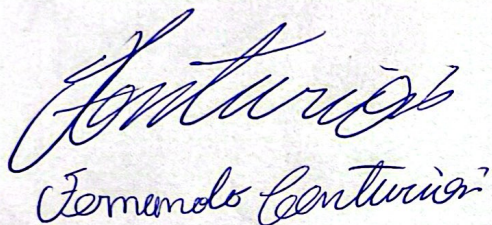 Centurión
Fernando Centurión